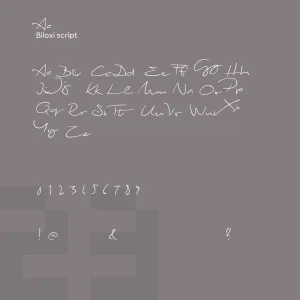 Aa
Biloxi script
Aa Bb Cc Dd Ee Ff Gg Hh
Ii Jj Kk Ll Mm Nn Oo Pp
Qq Rr Ss Tt Uu Vv Ww Xx
Yy Zz
0 1 2 3 4 5 6 7 8 9
! @ & ?